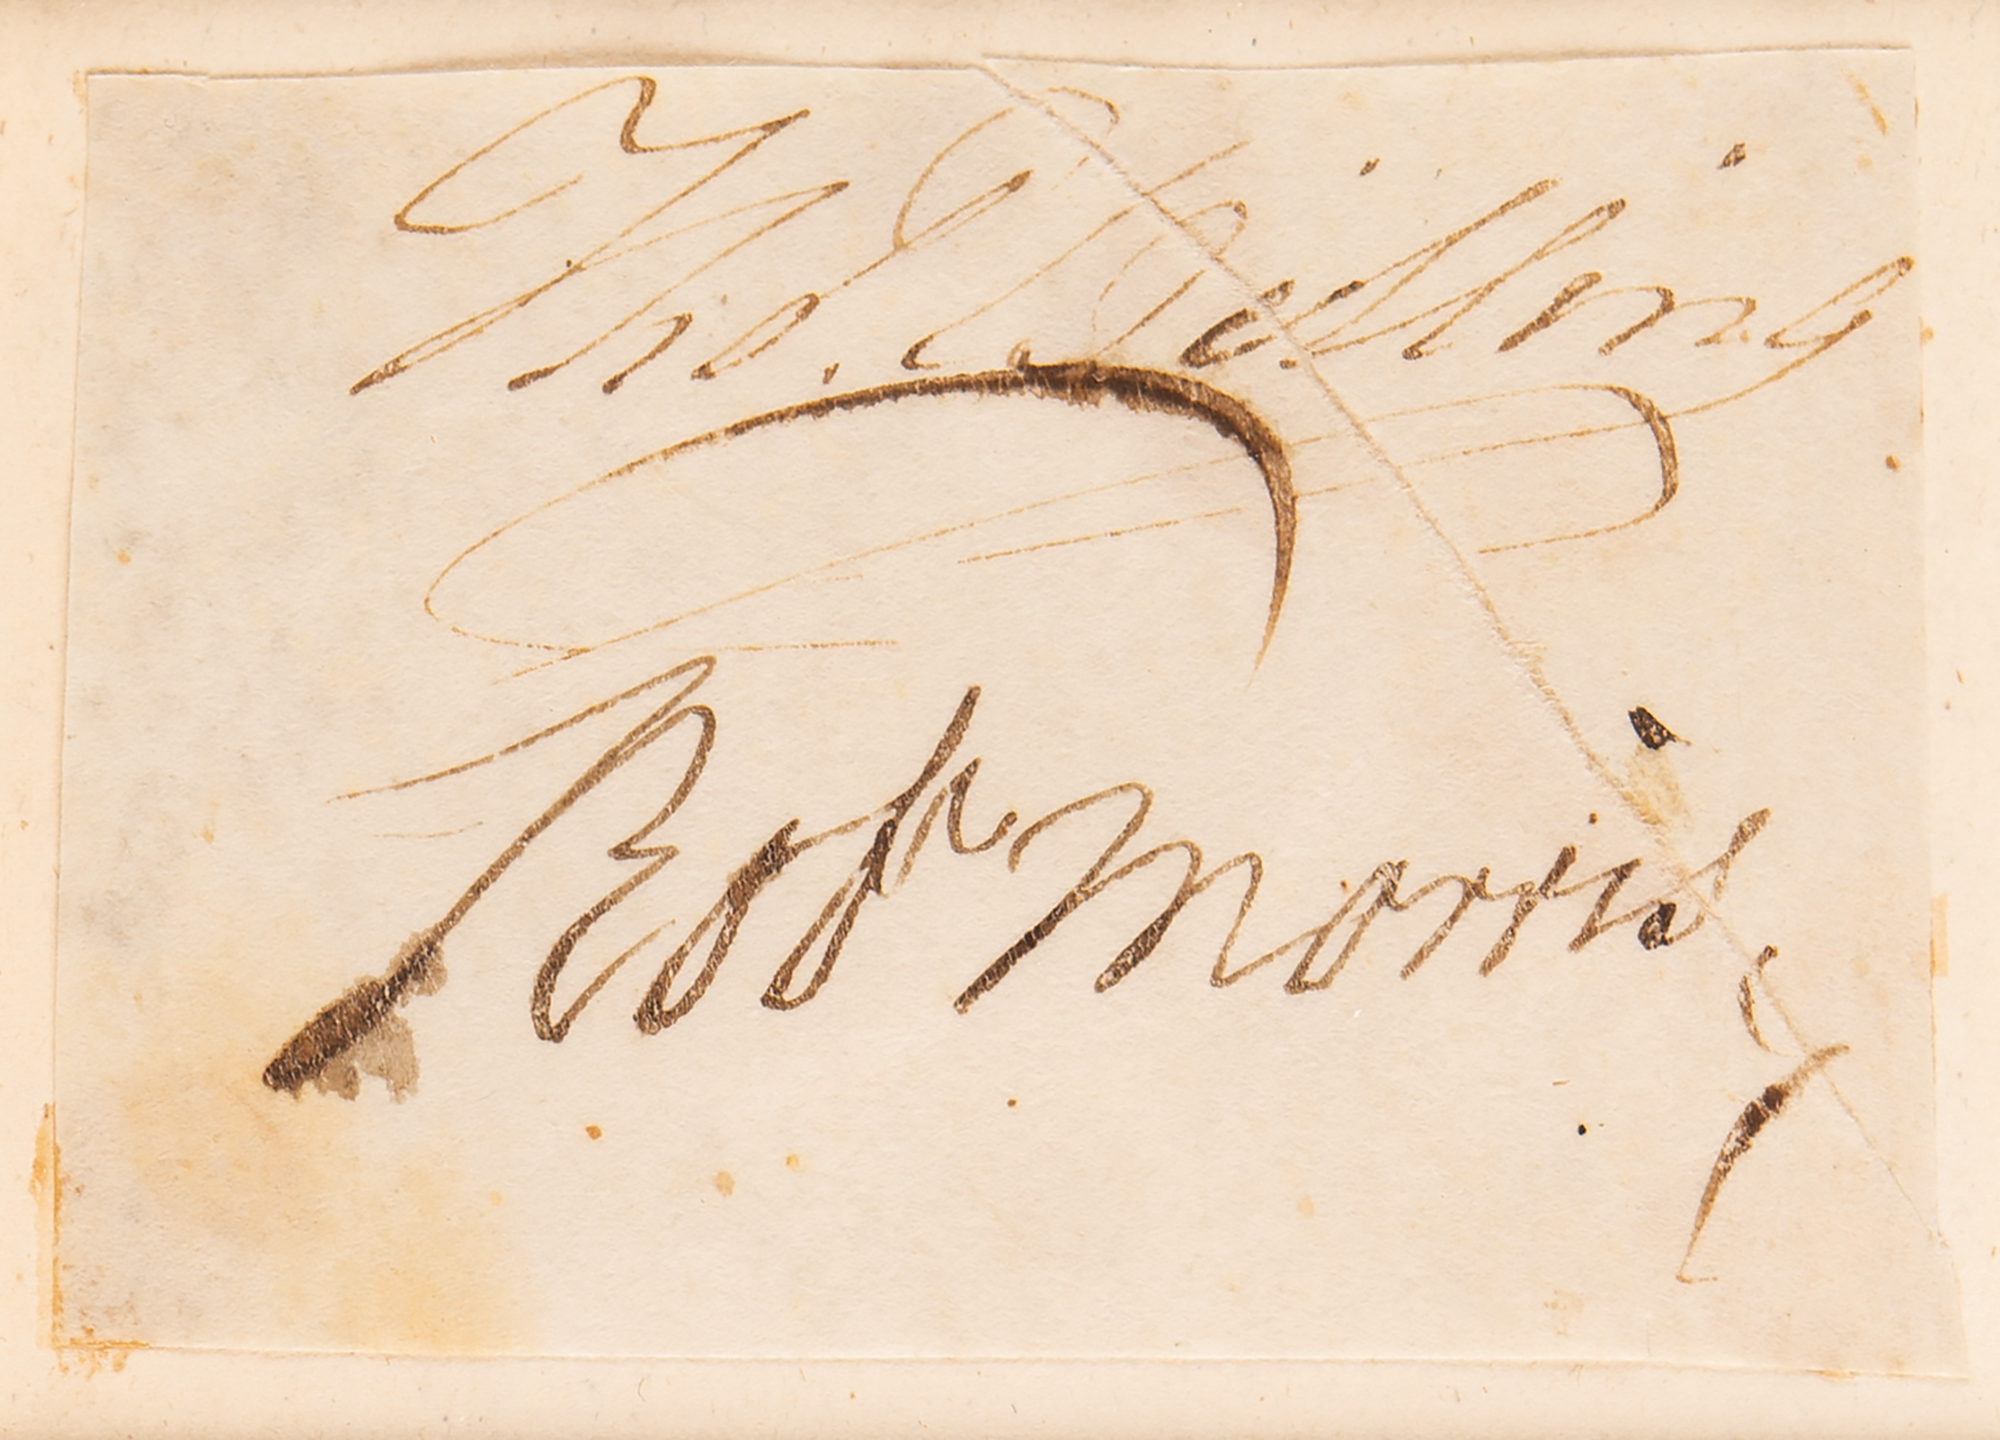 Tho. Willing
Rob Morris